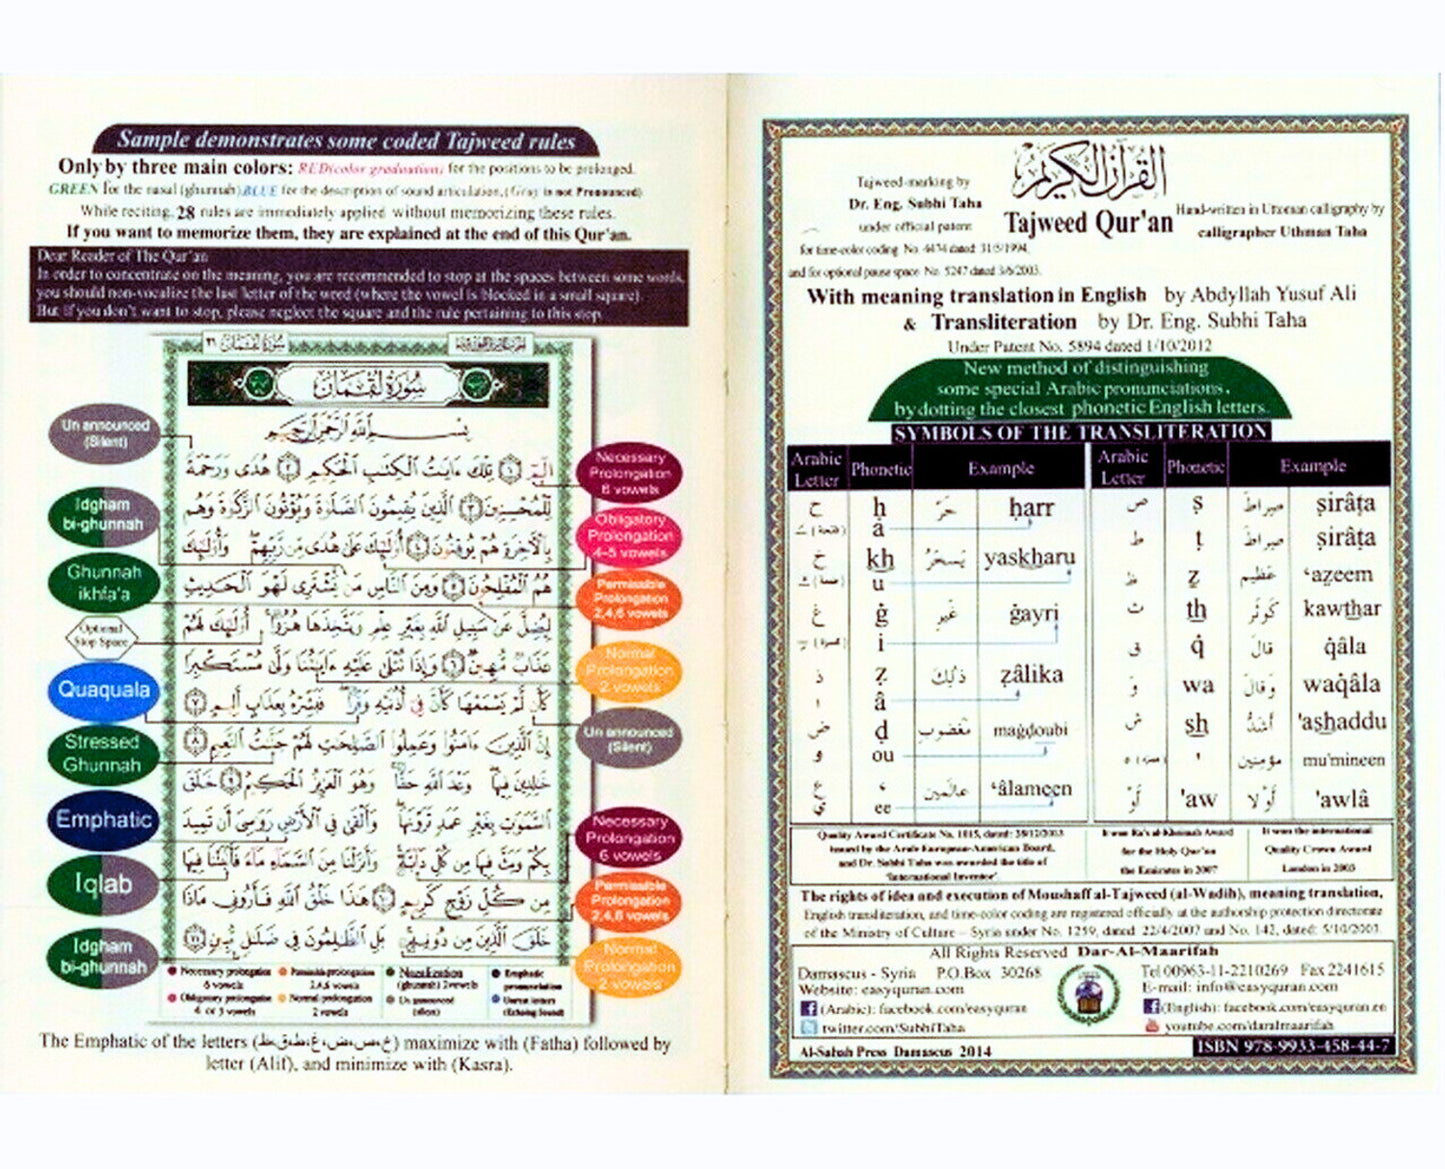 Sample demonstrates some coded Tajweed rules
Only by three main colors: RED(color graduation) for the positions to be prolonged.
GREEN for the nasal (ghunnah) BLUE for the description of sound articulation, (Gray is not Pronounced)
While reciting, 28 rules are immediately applied without memorizing these rules.
If you want to memorize them, they are explained at the end of this Qur'an.
Dear Reader of The Qur'an
In order to concentrate on the meaning, you are recommended to stop at the spaces between some words,
you should non-vocalize the last letter of the word (where the vowel is blocked in a small square).
But if you don't want to stop, please neglect the square and the rule pertaining to this stop.
سُورَةُ لُقْمَانَ
سُورَةُ لُقْمَانَ
بِسْمِ اللَّهِ الرَّحْمَٰنِ الرَّحِيمِ
الٓمٓ ١ تِلْكَ ءَايَٰتُ ٱلْكِتَٰبِ ٱلْحَكِيمِ ٢ هُدًى وَرَحْمَةً
لِّلْمُحْسِنِينَ ٣ ٱلَّذِينَ يُقِيمُونَ ٱلصَّلَوٰةَ وَيُؤْتُونَ ٱلزَّكَوٰةَ وَهُم
بِٱلْءَاخِرَةِ هُمْ يُوقِنُونَ ٤ أُو۟لَٰٓئِكَ عَلَىٰ هُدًى مِّن رَّبِّهِمْ وَأُو۟لَٰٓئِكَ
هُمُ ٱلْمُفْلِحُونَ ٥ وَمِنَ ٱلنَّاسِ مَن يَشْتَرِى لَهْوَ ٱلْحَدِيثِ
لِيُضِلَّ عَن سَبِيلِ ٱللَّهِ بِغَيْرِ عِلْمٍ وَيَتَّخِذَهَا هُزُوًا أُو۟لَٰٓئِكَ لَهُمْ
عَذَابٌ مُّهِينٌ ٦ وَإِذَا تُتْلَىٰ عَلَيْهِ ءَايَٰتُنَا وَلَّىٰ مُسْتَكْبِرًا
كَأَن لَّمْ يَسْمَعْهَا كَأَنَّ فِىٓ أُذُنَيْهِ وَقْرًا فَبَشِّرْهُ بِعَذَابٍ أَلِيمٍ ٧
إِنَّ ٱلَّذِينَ ءَامَنُوا۟ وَعَمِلُوا۟ ٱلصَّٰلِحَٰتِ لَهُمْ جَنَّٰتُ ٱلنَّعِيمِ ٨
خَٰلِدِينَ فِيهَا وَعْدَ ٱللَّهِ حَقًّا وَهُوَ ٱلْعَزِيزُ ٱلْحَكِيمُ ٩ خَلَقَ
ٱلسَّمَٰوَٰتِ بِغَيْرِ عَمَدٍ تَرَوْنَهَا وَأَلْقَىٰ فِى ٱلْأَرْضِ رَوَٰسِىَ أَن تَمِيدَ
بِكُمْ وَبَثَّ فِيهَا مِن كُلِّ دَآبَّةٍ وَأَنزَلْنَا مِنَ ٱلسَّمَآءِ مَآءً فَأَنۢبَتْنَا فِيهَا
مِن كُلِّ زَوْجٍ كَرِيمٍ ١٠ هَٰذَا خَلْقُ ٱللَّهِ فَأَرُونِى مَاذَا
خَلَقَ ٱلَّذِينَ مِن دُونِهِۦ بَلِ ٱلظَّٰلِمُونَ فِى ضَلَٰلٍ مُّبِينٍ ١١
Un announced
(Silent)
Idgham
bi-ghunnah
Ghunnah
ikhfa'a
Optional
Stop Space
Quaquala
Stressed
Ghunnah
Emphatic
Iqlab
Idgham
bi-ghunnah
Necessary
Prolongation
6 vowels
Obligatory
Prolongation
4-5 vowels
Permissible
Prolongation
2,4,6 vowels
Normal
Prolongation
2 vowels
Un announced
(Silent)
Necessary
Prolongation
6 vowels
Permissible
Prolongation
2,4,6 vowels
Normal
Prolongation
2 vowels
Necessary prolongation Permissible prolongation Nazalization Emphatic
6 vowels 2,4,6 vowels (ghunnah) 2vowels pronunciation
Obligatory prolongation Normal prolongation Un announced Unrest letters
4 or 5 vowels 2 vowels (silent) (Echoing Sound)
The Emphatic of the letters (خ،ص،ض،غ،ط،ق،ظ) maximize with (Fatha) followed by
letter (Alif), and minimize with (Kasra).
القرآن الكريم
Tajweed-marking by
Dr. Eng. Subhi Taha
under official patent
Tajweed Qur'an
Hand-written in Uttoman calligraphy by
calligrapher Uthman Taha
for time-color coding No. 4474 dated 31/5/1994,
and for optional pause space No. 5247 dated 3/6/2003.
With meaning translation in English by Abdyllah Yusuf Ali
& Transliteration by Dr. Eng. Subhi Taha
Under Patent No. 5894 dated 1/10/2012
New method of distinguishing
some special Arabic pronunciations,
by dotting the closest phonetic English letters.
SYMBOLS OF THE TRANSLITERATION
Arabic Letter Phonetic Example Arabic Letter Phonetic Example
ح ḥ حَرّ ḥarr ص ṣ صِراط ṣirâṭa
(فتحة) َ à ط ṭ صِراط ṣirâṭa
خ kh يَسخَرُ yaskharu ظ ẓ عَظيم ‘aẓeem
(ضمة) ُ u ث th كَوثَر kawthar
غ ġ غَيرِ ġayri ق q̇ قالَ q̇âla
(كسرة) ِ i وَ wa وَقالَ waq̇âla
ذ ẓ ذٰلِكَ ẓâlika ش sh أشَدُّ 'ashaddu
ا â
ض ḍ مَغضوبِ maġdoubi ء ' مؤمنين mu'mineen
و ou
ع ‘ عالَمين ‘âlameen أَوْ 'aw أَوْلا 'awlâ
ي ee
Quality Award Certificate No. 1015, dated: 28/12/2003
issued by the Arab European-American Board,
and Dr. Subhi Taha was awarded the title of
'International Inventor'.
It won Ra's al-Khaimah Award
for the Holy Qur'an
the Emirates in 2007
It won the international
Quality Crown Award
London in 2003
The rights of idea and execution of Moushaff al-Tajweed (al-Wadih), meaning translation,
English transliteration, and time-color coding are registered officially at the authorship protection directorate
of the Ministry of Culture – Syria under No. 1259, dated: 22/4/2007 and No. 142, dated: 5/10/2003.
All Rights Reserved Dar-Al-Maarifah
Damascus - Syria P.O.Box 30268
Website: easyquran.com
(Arabic): facebook.com/easyquran
twitter.com/SubhiTaha
Tel 00963-11-2210269 Fax 2241615
E-mail: info@easyquran.com
(English): facebook.com/easyquran.en
youtube.com/daralmaarifah
Al-Sabah Press Damascus 2014
ISBN 978-9933-458-44-7